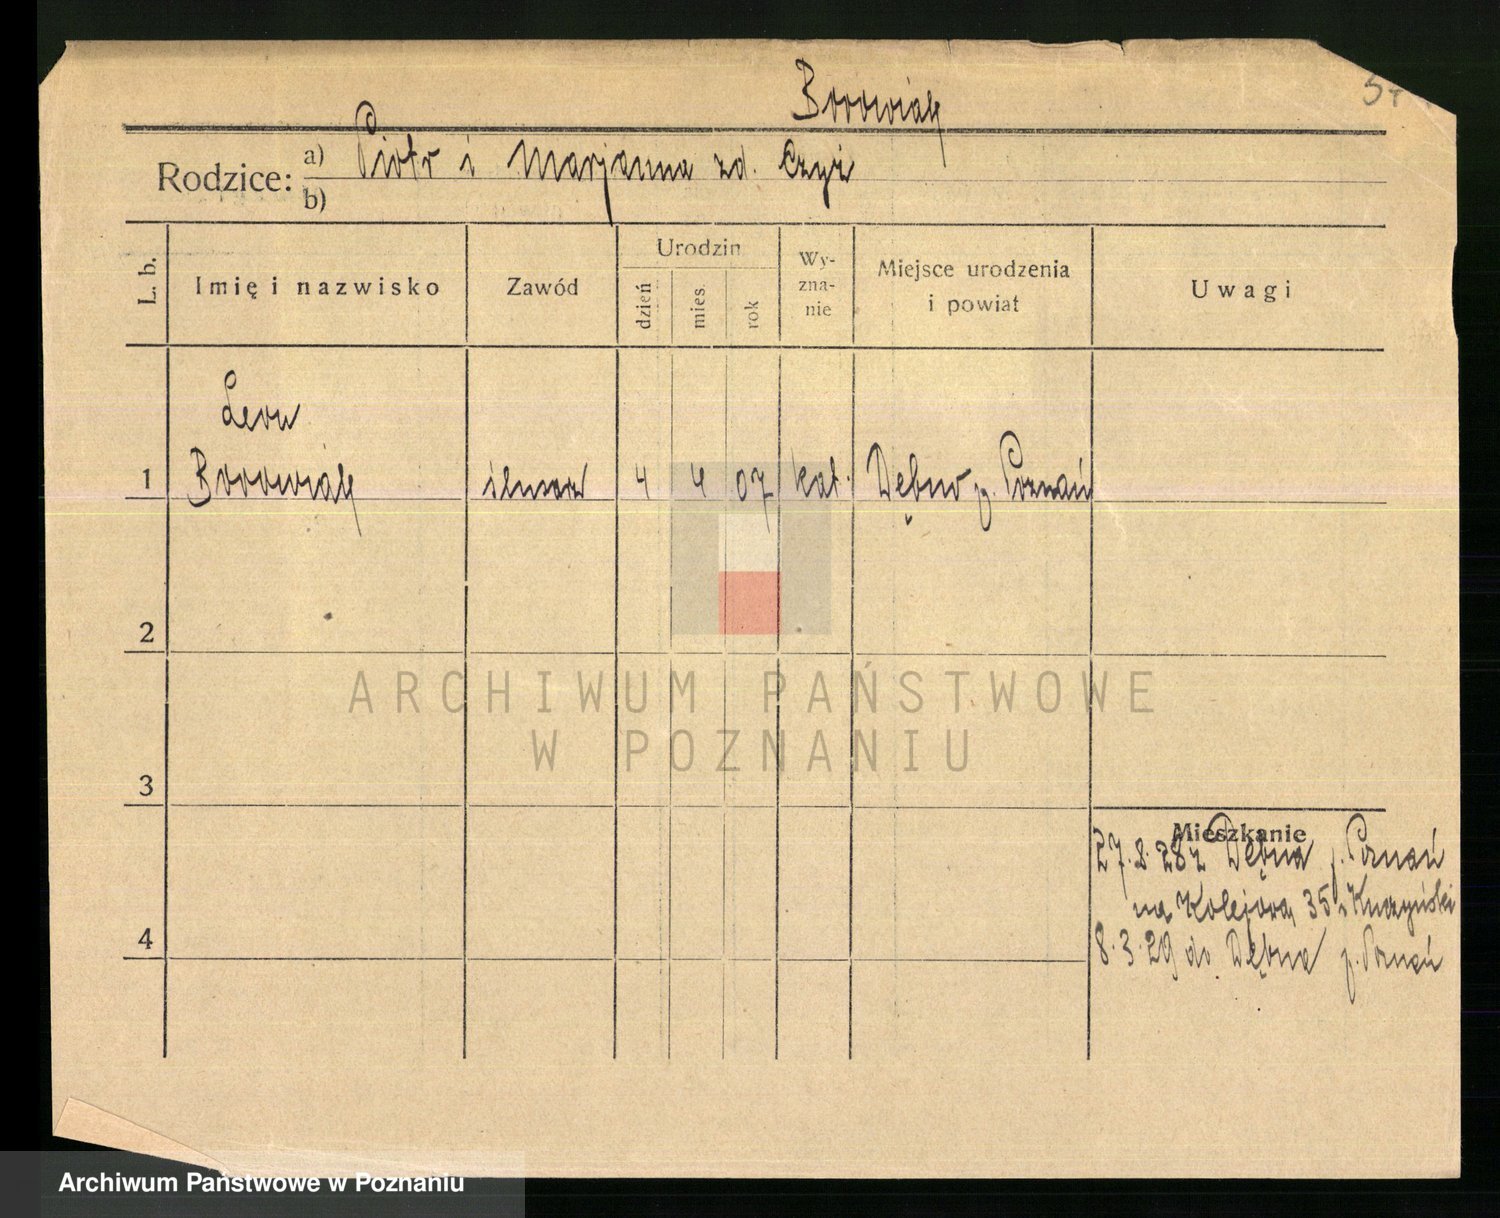 Borowiak
Rodzice: a) Piotr i Marjanna zd. Czyż
b)
L. b. Imię i nazwisko Zawód Urodzin dzień mies. rok Wyznanie Miejsce urodzenia i powiat Uwagi
Leon
1 Borowiak ślusarz 4 4 07 kat. Dębno p. Poznań
2
3
Mieszkanie
27.8.28 z Dębna p. Poznań
na Kolejową 35
4
8.3.29 do Dębna p. Poznań
ARCHIWUM PAŃSTWOWE
W POZNANIU
Archiwum Państwowe w Poznaniu